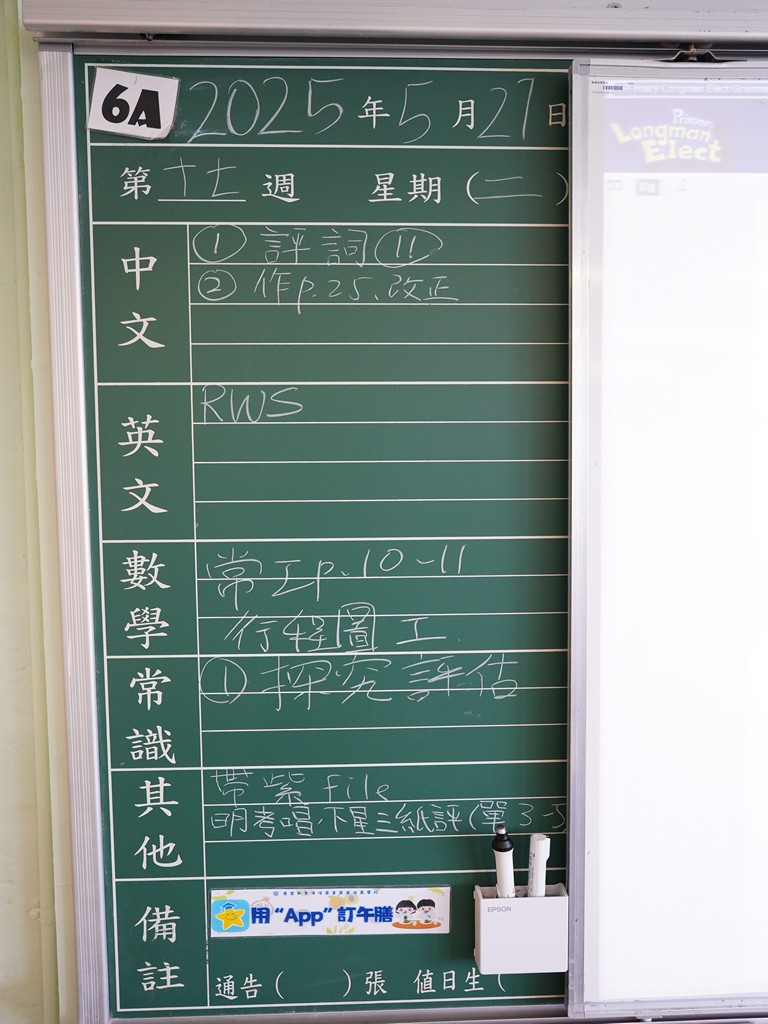 6A 2025年5月27日
第十七週 星期(二)
中文
① 評詞⑪
② 作p.25、改正
英文
RWS
數學
常工p.10-11
行程圖 工
常識
① 探究評估
其他
帶紫file
明考唱,下星三紙評(單3-5
備註
用“App”訂午膳
EPSON
通告( )張 值日生(
Primary
Longman
Elect